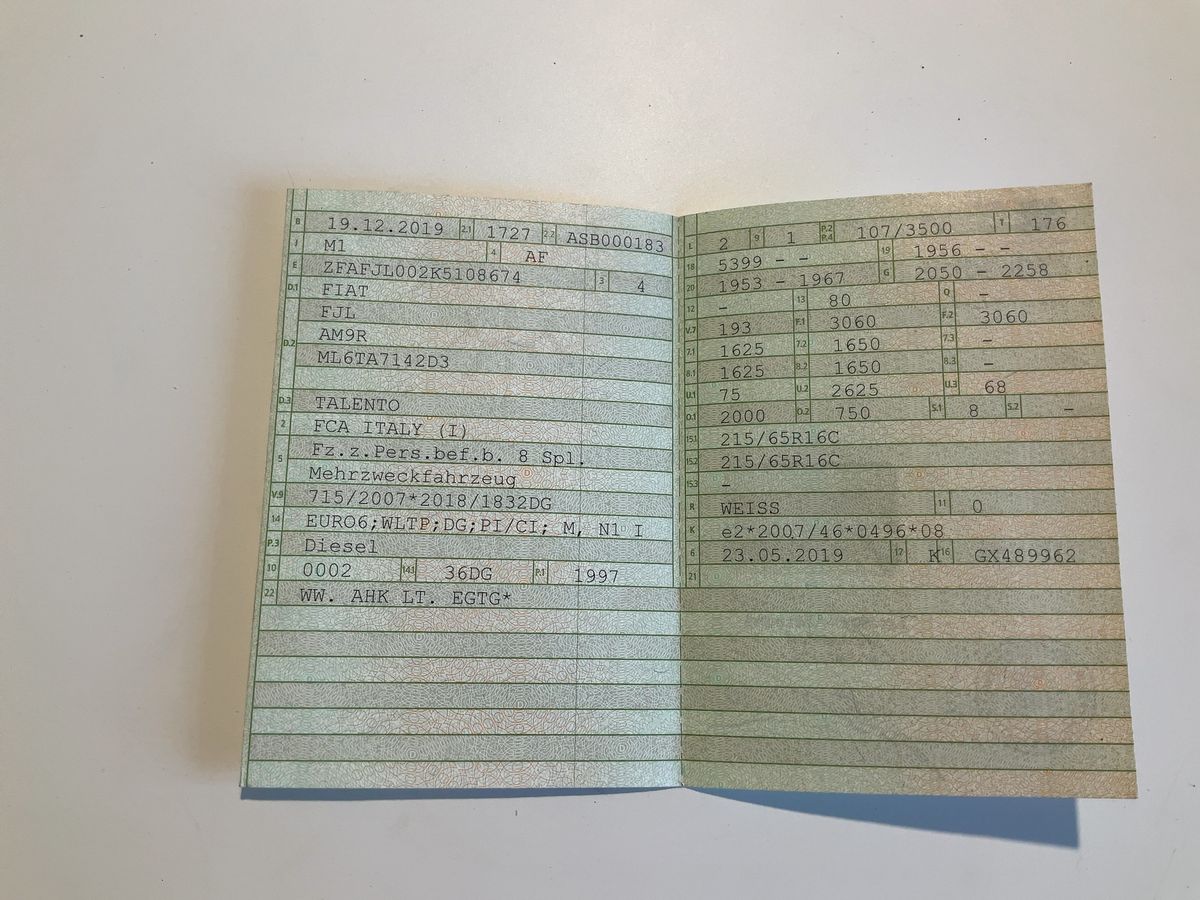 B 19.12.2019 2.1 1727 2.2 ASB000183
J M1 4 AF
E ZFAFJL002K5108674 3 4
D.1 FIAT
FJL
D.2 AM9R
ML6TA7142D3
D.3 TALENTO
2 FCA ITALY (I)
5 Fz.z.Pers.bef.b. 8 Spl.
Mehrzweckfahrzeug
V.9 715/2007*2018/1832DG
14 EURO6;WLTP;DG;PI/CI; M, N1 I
P.3 Diesel
10 0002 14.1 36DG P.1 1997
22 WW. AHK LT. EGTG*
L 2 9 1 P.2 P.4 107/3500 T 176
18 5399 - - 19 1956 - -
20 1953 - 1967 G 2050 - 2258
12 - 13 80 Q -
V.7 193 F.1 3060 F.2 3060
7.1 1625 7.2 1650 7.3 -
8.1 1625 8.2 1650 8.3 -
U.1 75 U.2 2625 U.3 68
O.1 2000 O.2 750 S.1 8 S.2 -
15.1 215/65R16C
15.2 215/65R16C
15.3 -
R WEISS 11 0
K e2*2007/46*0496*08
6 23.05.2019 17 K 16 GX489962
21